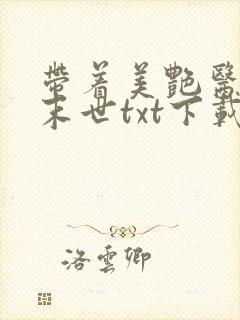 帶着美艷醫
末世txt下載
洛雲卿